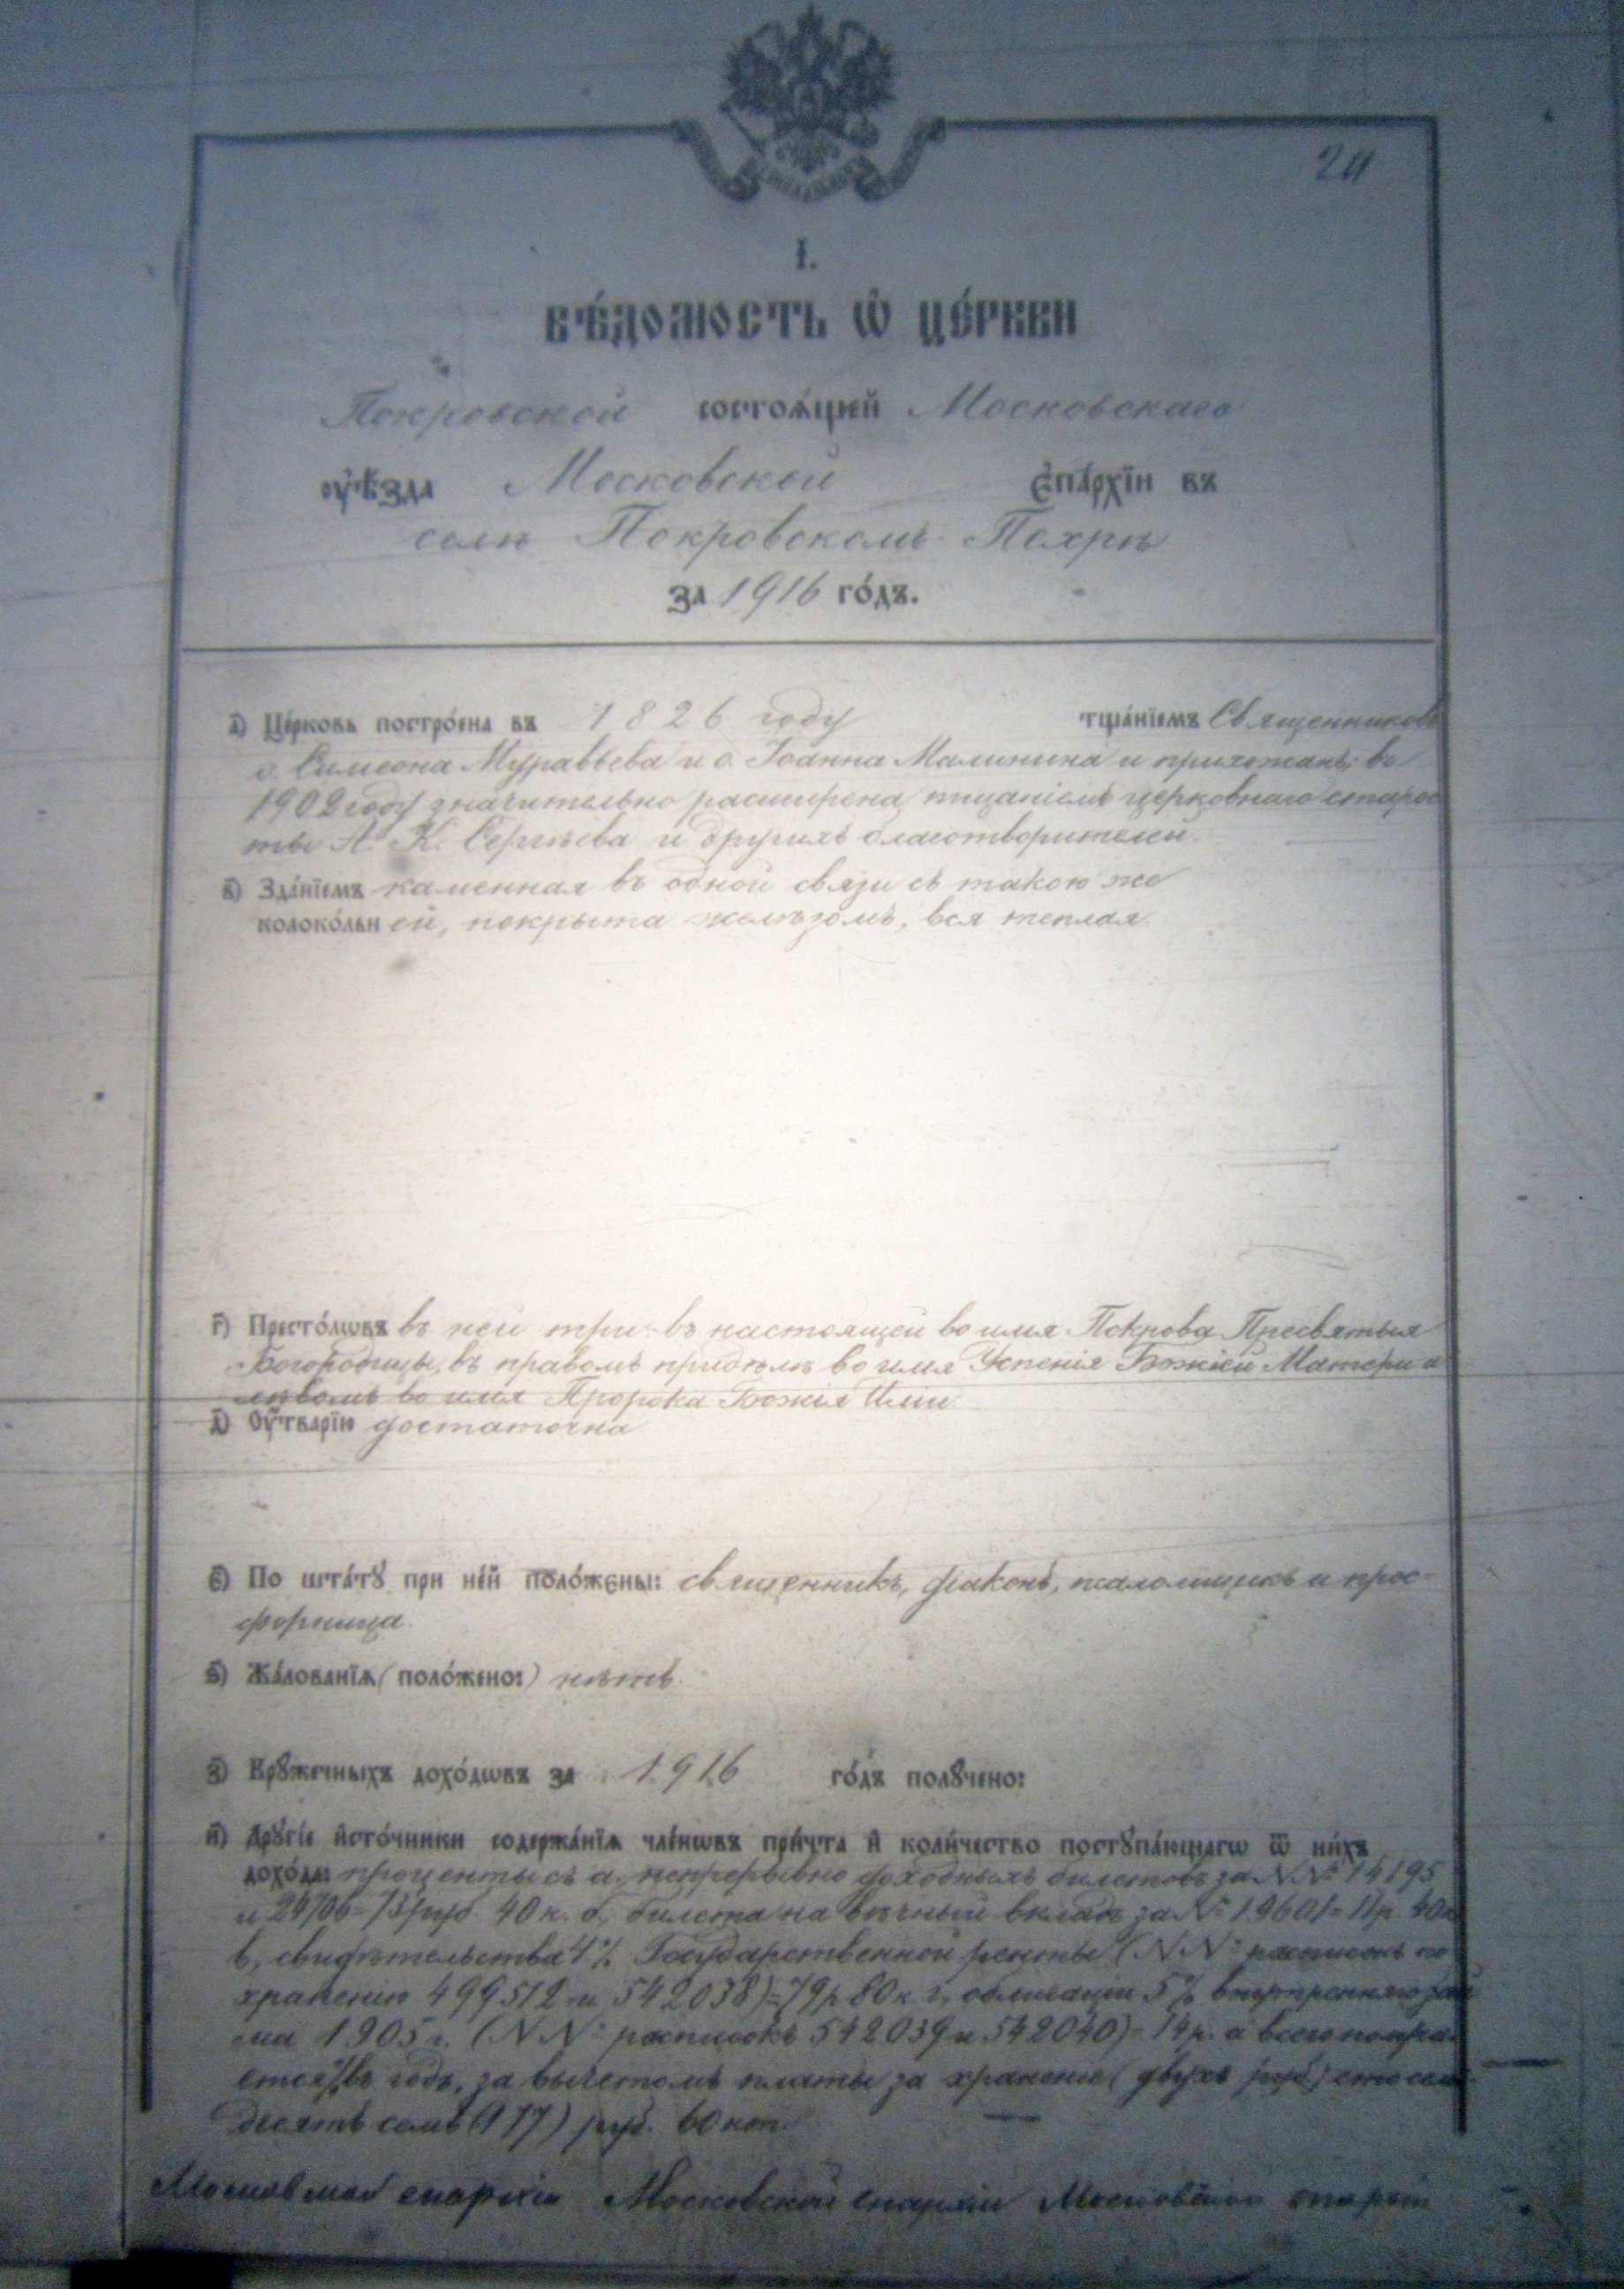 24
I.
ВѢ́ДОМОСТЬ Ѡ҆ ЦЕ́РКВИ
Покровской состоѧ́щей Московскаго
оу҆ѣ́зда Московской Є҆па́рхїи въ
селѣ Покровскомъ Пахрѣ
за 1916 го́дъ.
а҃) Це́рковь постро́ена въ 1826 году тща́нїемъ Священниковъ
о. Симеона Муравьева и о. Іоанна Малинина и прихожанъ; въ
1902 году значительно расширена тщаніемъ церковнаго старос
ты А. К. Сергѣева и другихъ благотворителей.
в҃) Зда́нїемъ каменная въ одной связи съ такою же
колоко́льней, покрыта желѣзомъ, вся теплая.
г҃) Престо́лѡвъ въ ней три: въ настоящей во имя Покрова Пресвятыя
Богородицы, въ правомъ придѣлѣ во имя Успенія Божіей Матери и
лѣвомъ во имя Пророка Божія Иліи.
д҃) Оу҆́тварїю достаточна
є҃) По шта́тꙋ при не́й поло́жены: священникъ, діаконъ, псаломщикъ и прос=
форница.
ѕ҃) Жа́лованїѧ (поло́жено:) нѣтъ.
з҃) Крꙋ́жечныхъ дохо́дѡвъ за 1916 го́дъ полꙋ́чено:
и҃) Дрꙋгі́е и҆сто́чники содержа́нїѧ чле́нѡвъ при́чта и҆ коли́чество постꙋпа́ющагѡ ѿ ни́хъ
дохо́да: проценты съ а, непрерывно доходныхъ билетовъ за №№ 14195
и 24706=73 руб. 40 к. б, билета на вѣчный вкладъ за № 19601= 11 р. 40 к
в, свидѣтельства 4% Государственной ренты (№№ расписокъ по
храненію 499512 и 542038)=79 р 80 к. г, облигаціи 5% внутренняго зай
ма 1905 г. (№№ расписокъ 542039 и 542040)= 14 р. а всего
% въ годъ, за вычетомъ платы за храненіе (двухъ руб.) сто семь
десятъ семь (177) руб. 60 коп.
Московской епархіи Московской епархіи Московской епархіи